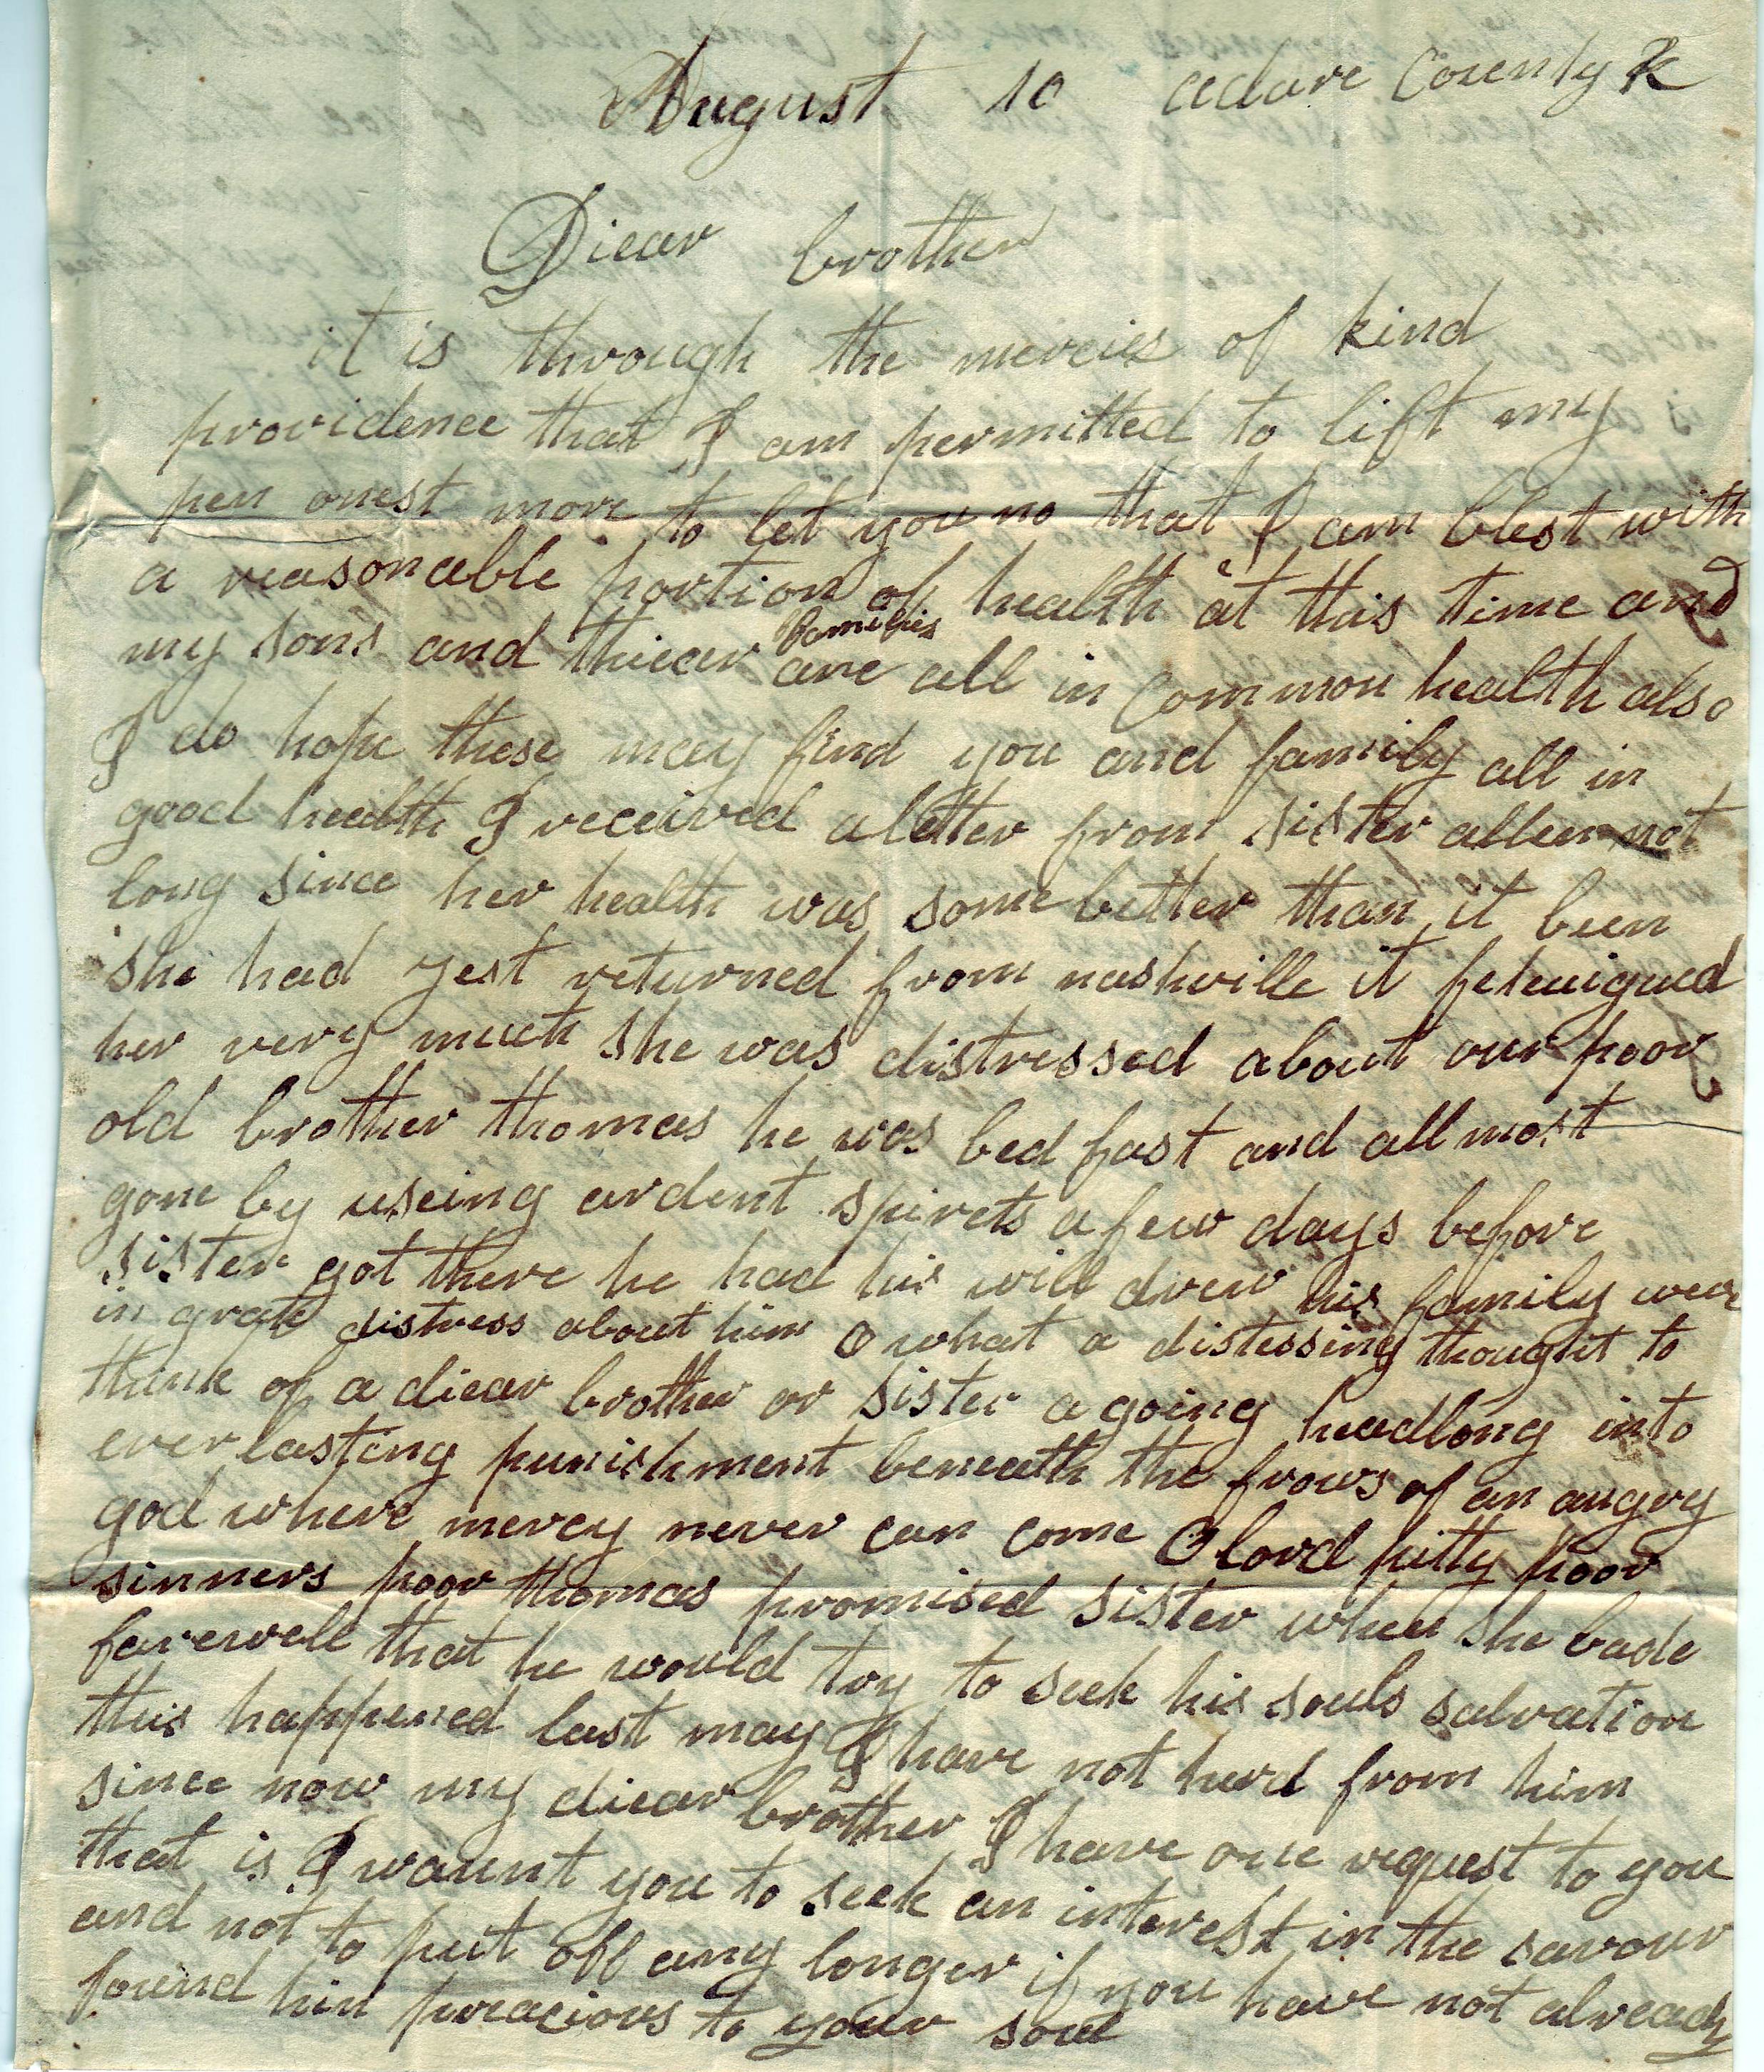 August 10 adare County K
Diear brother
it is through the mercies of kind
providence that I am permitted to lift my
pen onest more to let you no that I am blest with
a reasonable portion of health at this time and
my sons and thiear families are all in common health also
I do hope these may find you and family all in
good health I received a letter from sister allen not
long since her health was some better than it been
she had jest returned from nashville it feteuigued
her very much she was distressed about our poor
old brother thomas he was bed fast and all most
gone by useing ardent spirets a few days before
sister got there he had his will drew his family wear
in grate distress about him O what a distessing thought to
think of a diear brother or sister a going headlong into
everlasting punishment beneath the frows of an angry
god where mercy never can come O lord pitty poor
sinners poor thomas promised sister when she bade
farewell that he would try to seek his souls salvation
this happened last may I have not herd from him
since now my diear brother I have one request to you
that is I waunt you to seek an interest in the savour
and not to put off any longer if you have not already
found him preacious to your soul